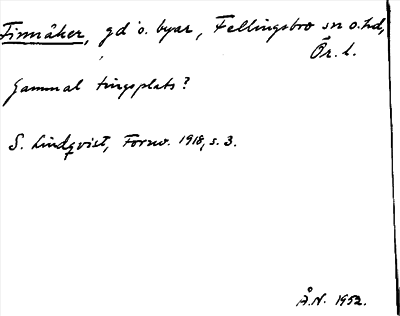 Finnåker, gd o. byar, Fellingsbro sn o. hd,
Ör. l.
Gammal tingsplats?
S. Lindqvist, Fornv. 1918, s. 3.
Å.N. 1952.